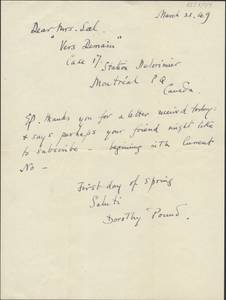 March 21. 49
Dear Mrs.
"Vers Demain"
Case 17.
Station Delorimier
Montréal P.Q
Canada.
EP. thanks you for a letter received today:
& says perhaps your friend might like
to subscribe - beginning with current
No -
First day of Spring
Saluti
Dorothy Pound.